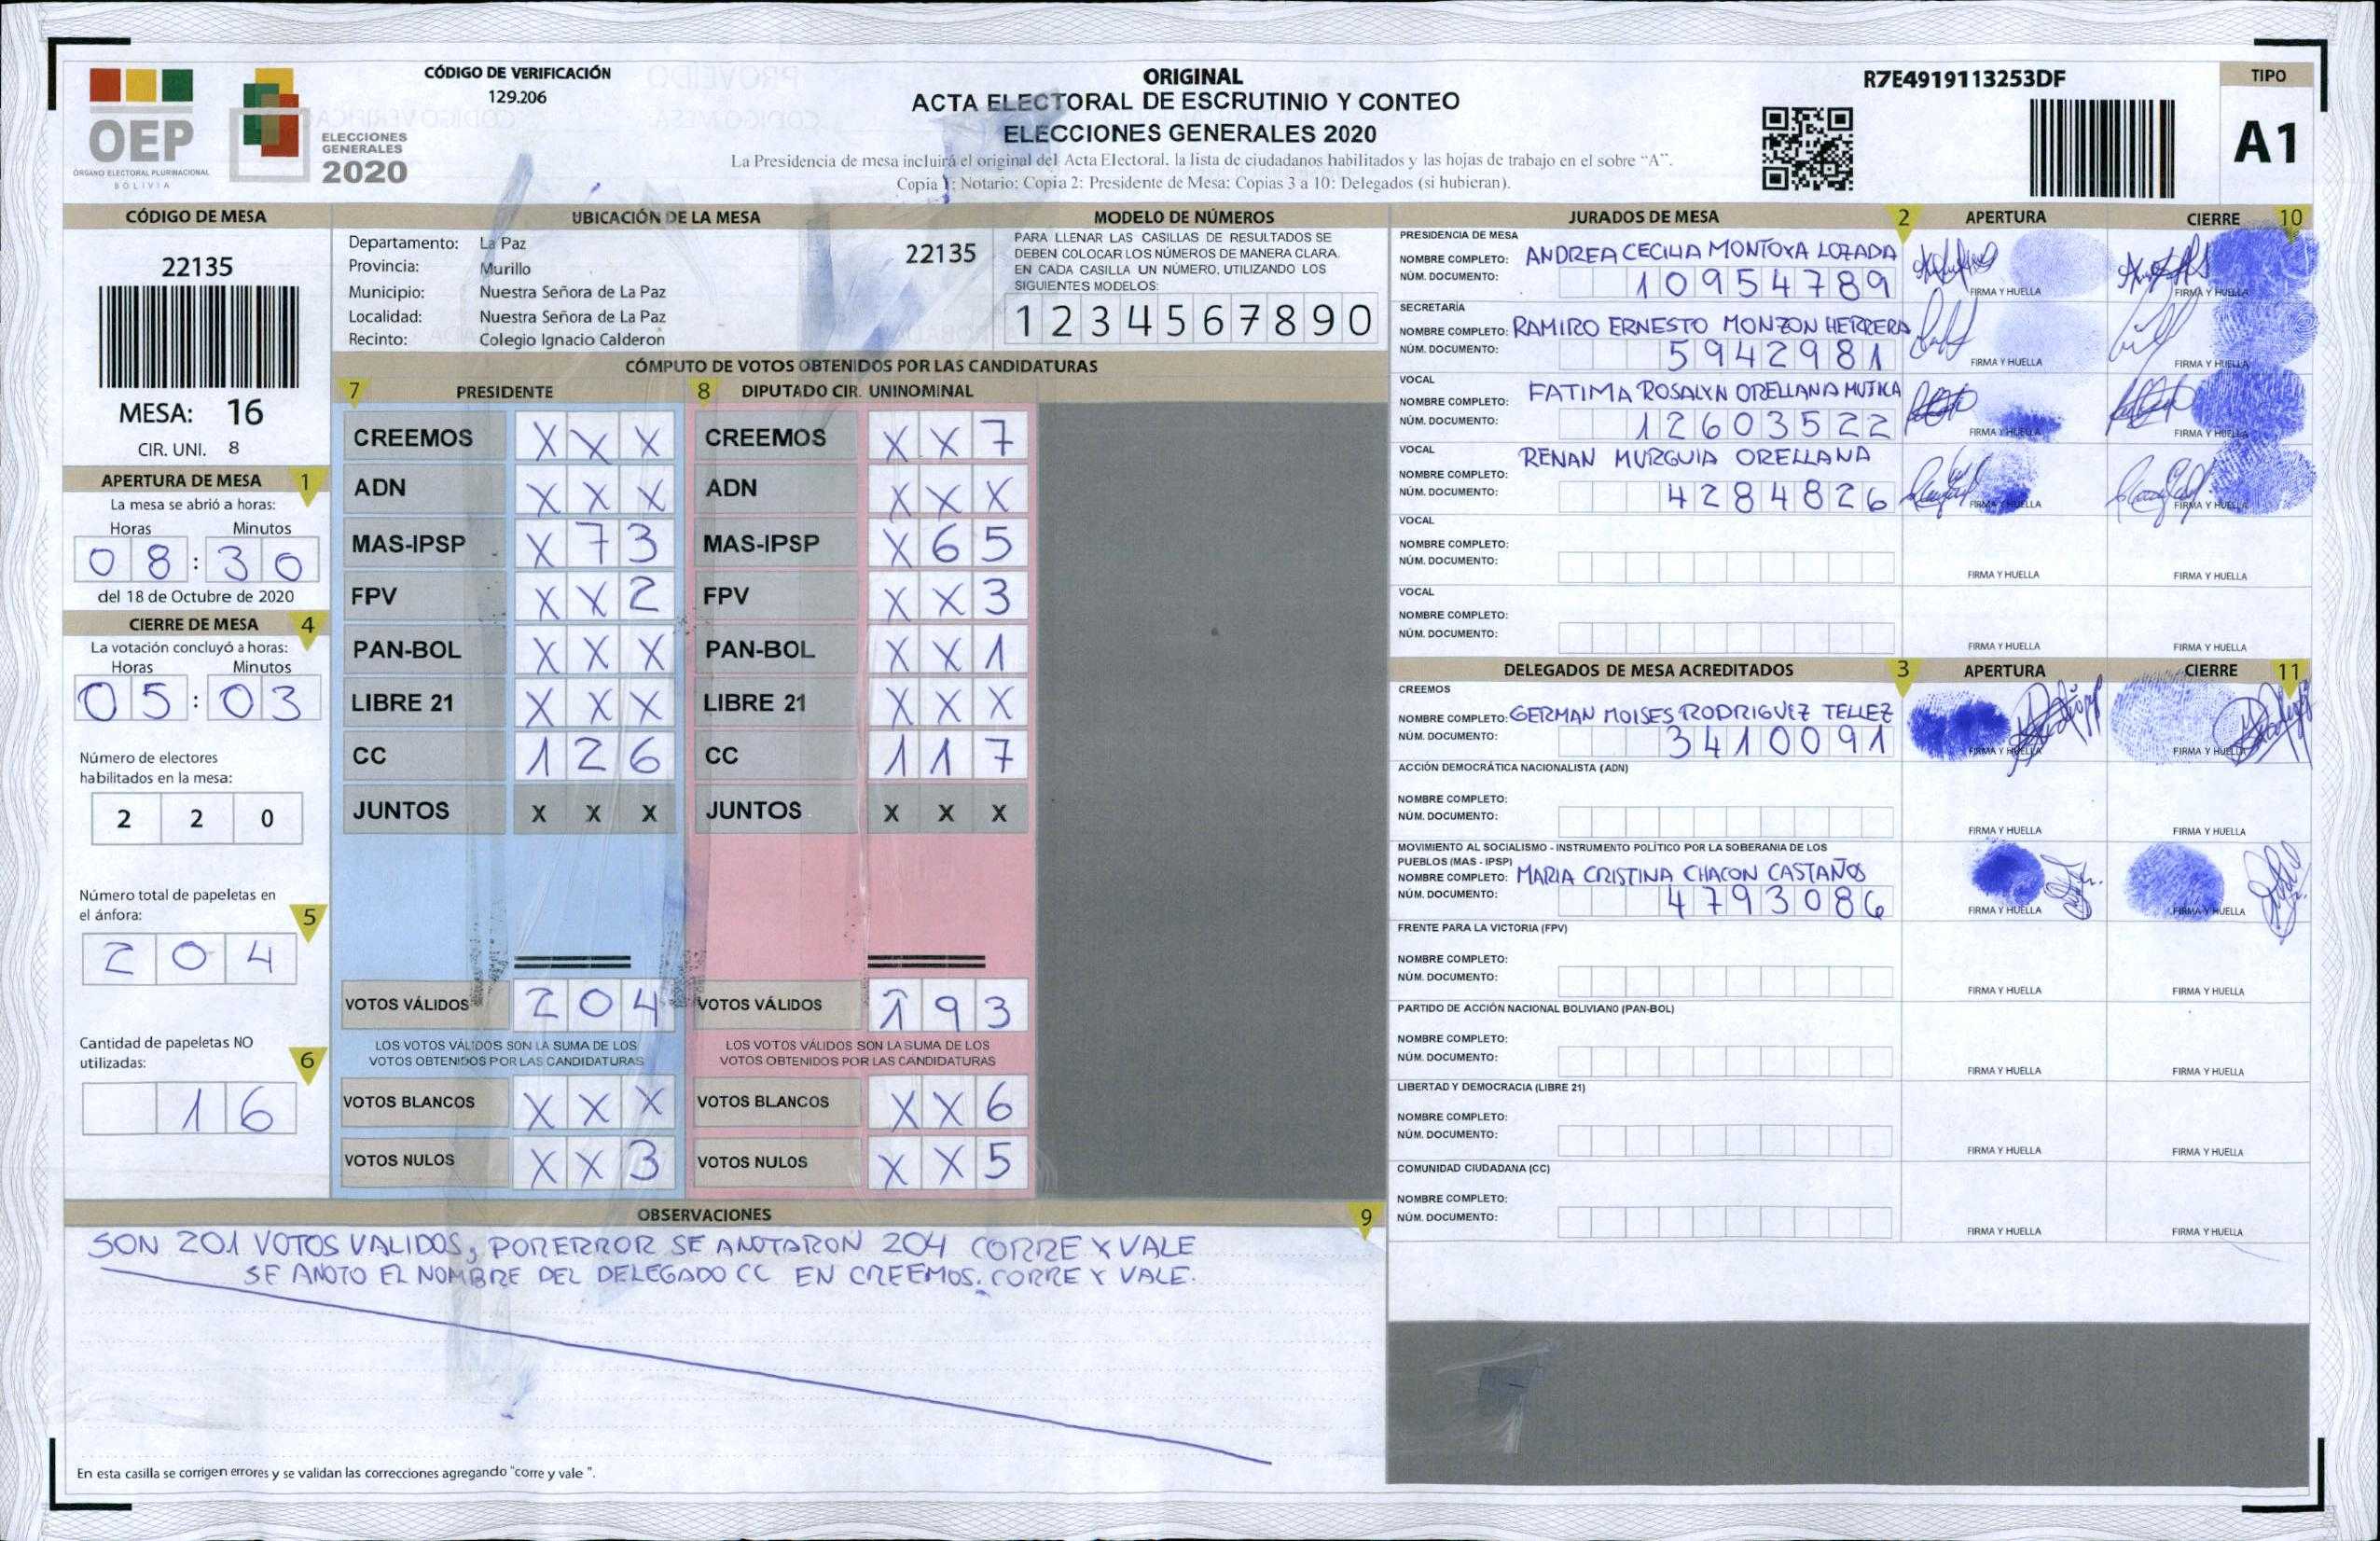 OEP
ÓRGANO ELECTORAL PLURINACIONAL
BOLIVIA
ELECCIONES
GENERALES
2020
CÓDIGO DE VERIFICACIÓN
129.206
ORIGINAL
ACTA ELECTORAL DE ESCRUTINIO Y CONTEO
ELECCIONES GENERALES 2020
La Presidencia de mesa incluirá el original del Acta Electoral, la lista de ciudadanos habilitados y las hojas de trabajo en el sobre “A”.
Copia 1: Notario: Copia 2: Presidente de Mesa: Copias 3 a 10: Delegados (si hubieran).
R7E4919113253DF
TIPO
A1
CÓDIGO DE MESA
22135
MESA: 16
CIR. UNI. 8
APERTURA DE MESA 1
La mesa se abrió a horas:
Horas Minutos
08:30
del 18 de Octubre de 2020
CIERRE DE MESA 4
La votación concluyó a horas:
Horas Minutos
05:03
Número de electores
habilitados en la mesa:
2 2 0
Número total de papeletas en
el ánfora: 5
2 0 4
Cantidad de papeletas NO
utilizadas: 6
1 6
UBICACIÓN DE LA MESA
Departamento: La Paz 22135
Provincia: Murillo
Municipio: Nuestra Señora de La Paz
Localidad: Nuestra Señora de La Paz
Recinto: Colegio Ignacio Calderon
MODELO DE NÚMEROS
PARA LLENAR LAS CASILLAS DE RESULTADOS SE
DEBEN COLOCAR LOS NÚMEROS DE MANERA CLARA.
EN CADA CASILLA UN NÚMERO, UTILIZANDO LOS
SIGUIENTES MODELOS:
1 2 3 4 5 6 7 8 9 0
CÓMPUTO DE VOTOS OBTENIDOS POR LAS CANDIDATURAS
7 PRESIDENTE 8 DIPUTADO CIR. UNINOMINAL
CREEMOS X X X CREEMOS X X 7
ADN X X X ADN X X X
MAS-IPSP X 7 3 MAS-IPSP X 6 5
FPV X X 2 FPV X X 3
PAN-BOL X X X PAN-BOL X X 1
LIBRE 21 X X X LIBRE 21 X X X
CC 1 2 6 CC 1 1 7
JUNTOS X X X JUNTOS X X X
VOTOS VÁLIDOS 2 0 4 VOTOS VÁLIDOS 1 9 3
LOS VOTOS VÁLIDOS SON LA SUMA DE LOS LOS VOTOS VÁLIDOS SON LA SUMA DE LOS
VOTOS OBTENIDOS POR LAS CANDIDATURAS VOTOS OBTENIDOS POR LAS CANDIDATURAS
VOTOS BLANCOS X X X VOTOS BLANCOS X X 6
VOTOS NULOS X X 3 VOTOS NULOS X X 5
OBSERVACIONES 9
SON 201 VOTOS VALIDOS, POR ERROR SE ANOTARON 204 CORRE Y VALE
SE ANOTO EL NOMBRE DEL DELEGADO CC EN CREEMOS. CORRE Y VALE.
En esta casilla se corrigen errores y se validan las correcciones agregando "corre y vale ".
JURADOS DE MESA 2 APERTURA CIERRE 10
PRESIDENCIA DE MESA
NOMBRE COMPLETO: ANDREA CECILIA MONTOYA LOZADA
NÚM. DOCUMENTO: 10954789
FIRMA Y HUELLA FIRMA Y HUELLA
SECRETARÍA
NOMBRE COMPLETO: RAMIRO ERNESTO MONZON HERRERA
NÚM. DOCUMENTO: 5942981
FIRMA Y HUELLA FIRMA Y HUELLA
VOCAL
NOMBRE COMPLETO: FATIMA ROSALYN ORELLANA MUJICA
NÚM. DOCUMENTO: 12603522
FIRMA Y HUELLA FIRMA Y HUELLA
VOCAL
NOMBRE COMPLETO: RENAN MURGUIA ORELLANA
NÚM. DOCUMENTO: 4284826
FIRMA Y HUELLA FIRMA Y HUELLA
VOCAL
NOMBRE COMPLETO:
NÚM. DOCUMENTO:
FIRMA Y HUELLA FIRMA Y HUELLA
VOCAL
NOMBRE COMPLETO:
NÚM. DOCUMENTO:
FIRMA Y HUELLA FIRMA Y HUELLA
DELEGADOS DE MESA ACREDITADOS 3 APERTURA CIERRE 11
CREEMOS
NOMBRE COMPLETO: GERMAN MOISES RODRIGUEZ TELLEZ
NÚM. DOCUMENTO: 3410091
FIRMA Y HUELLA FIRMA Y HUELLA
ACCIÓN DEMOCRÁTICA NACIONALISTA (ADN)
NOMBRE COMPLETO:
NÚM. DOCUMENTO:
FIRMA Y HUELLA FIRMA Y HUELLA
MOVIMIENTO AL SOCIALISMO - INSTRUMENTO POLÍTICO POR LA SOBERANIA DE LOS
PUEBLOS (MAS - IPSP)
NOMBRE COMPLETO: MARIA CRISTINA CHACON CASTAÑOS
NÚM. DOCUMENTO: 4793086
FIRMA Y HUELLA FIRMA Y HUELLA
FRENTE PARA LA VICTORIA (FPV)
NOMBRE COMPLETO:
NÚM. DOCUMENTO:
FIRMA Y HUELLA FIRMA Y HUELLA
PARTIDO DE ACCIÓN NACIONAL BOLIVIANO (PAN-BOL)
NOMBRE COMPLETO:
NÚM. DOCUMENTO:
FIRMA Y HUELLA FIRMA Y HUELLA
LIBERTAD Y DEMOCRACIA (LIBRE 21)
NOMBRE COMPLETO:
NÚM. DOCUMENTO:
FIRMA Y HUELLA FIRMA Y HUELLA
COMUNIDAD CIUDADANA (CC)
NOMBRE COMPLETO:
NÚM. DOCUMENTO:
FIRMA Y HUELLA FIRMA Y HUELLA